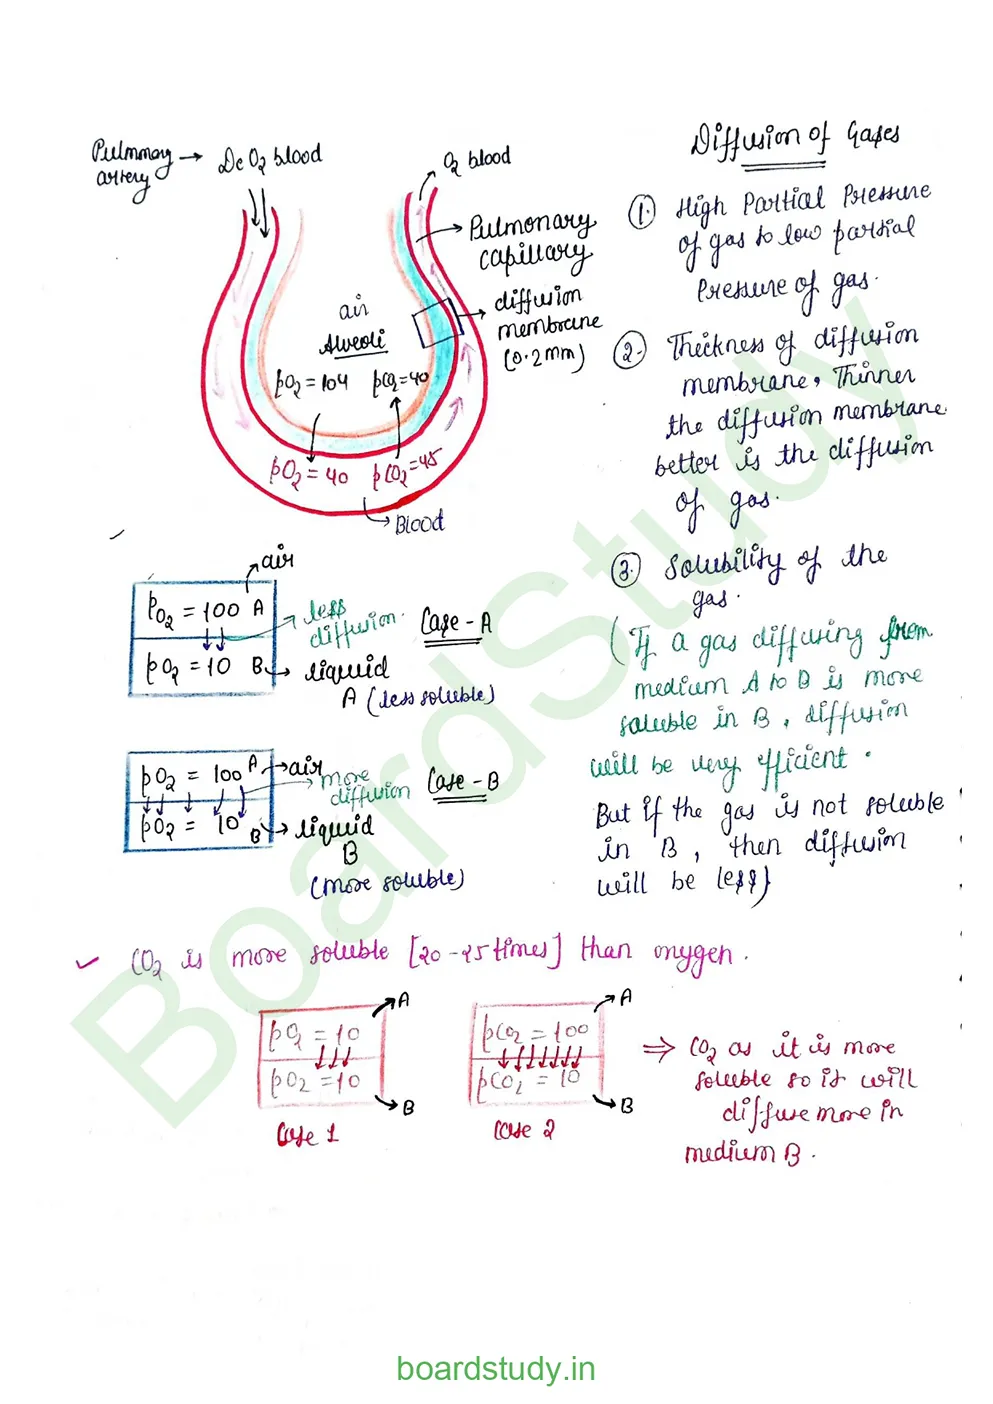 Diffusion of Gases
Pulmonary artery → De O2 blood
O2 blood
Pulmonary
capillary
diffusion
membrane
(0.2mm)
air
Alveoli
pO2 = 104 pCO2=40
pO2 = 40 pCO2=45
Blood
① High Partial Pressure
of gas to low partial
Pressure of gas.
② Thickness of diffusion
membrane, Thinner
the diffusion membrane
better is the diffusion
of gas.
③ Solubility of the
gas.
(If a gas diffusing from
medium A to B is more
soluble in B, diffusion
will be very efficient.
But if the gas is not soluble
in B, then diffusion
will be less)
air
pO2 = 100 A
less
diffusion.
Case - A
pO2 = 10 B → liquid
A (less soluble)
pO2 = 100 A → air
more
diffusion
Case - B
pO2 = 10 B → liquid
B
(more soluble)
✓ CO2 is more soluble [20-25 times] than oxygen.
A
pO2 = 10
pO2 = 10
B
Case 1
A
pCO2 = 100
pCO2 = 10
B
Case 2
⇒ CO2 as it is more
soluble so it will
diffuse more in
medium B.
BoardStudy
boardstudy.in